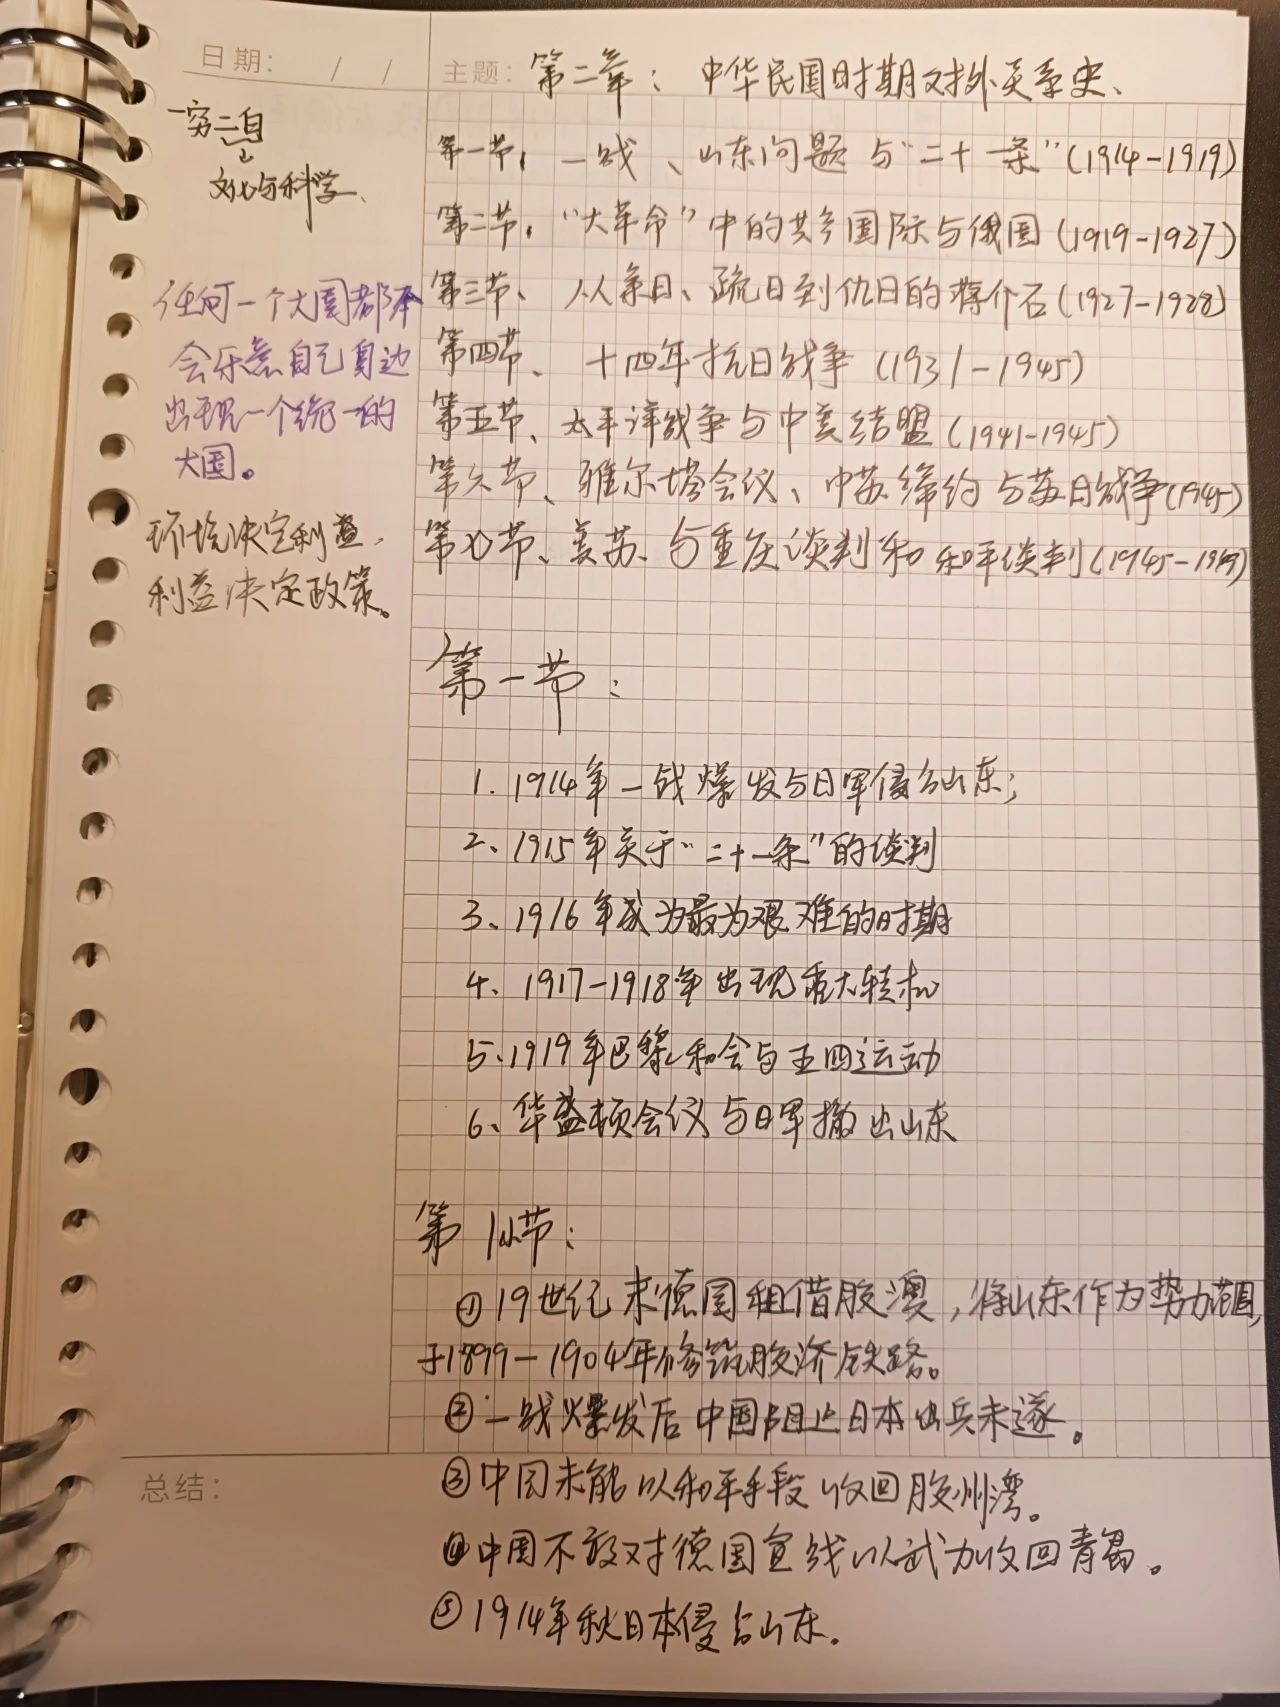 日期： / /
主题：第二章：中华民国时期对外关系史、
一穷二白
文化与科学、
任何一个大国都不
会乐意自己身边
出现一个统一的
大国。
环境决定利益，
利益决定政策。
第一节、一战、山东问题与“二十一条”(1914-1919)
第二节、“大革命”中的共产国际与俄国(1919-1927)
第三节、从亲日、疏日到仇日的蒋介石(1927-1928)
第四节、十四年抗日战争(1931-1945)
第五节、太平洋战争与中美结盟(1941-1945)
第六节、雅尔塔会议、中苏缔约与苏日战争(1945)
第七节、美苏、与重庆谈判和和平谈判(1945-1949)
第一节：
1. 1914年一战爆发与日军侵占山东；
2、1915年关于“二十一条”的谈判
3、1916年成为最为艰难的时期
4、1917-1918年出现重大转机
5、1919年巴黎和会与五四运动
6、华盛顿会议与日军撤出山东
第1小节：
①19世纪末德国租借胶澳，将山东作为势力范围，
于1899-1904年修筑胶济铁路。
②一战爆发后中国阻止日本出兵未遂。
总结：
③中国未能以和平手段收回胶州湾。
④中国不敢对德国宣战以武力收回青岛。
⑤1914年秋日本侵占山东。